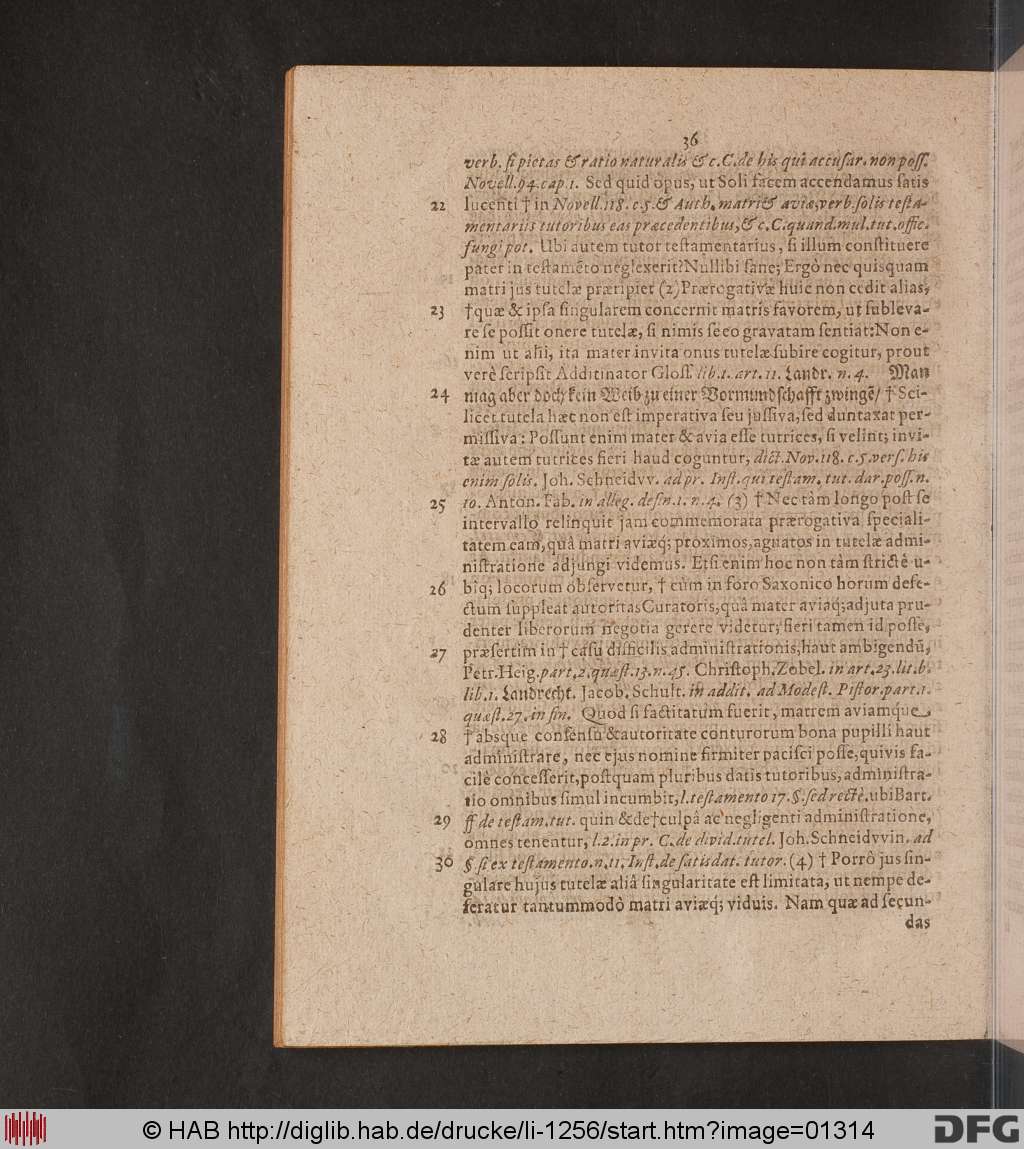 36
verb. ſi pietas & ratio naturalis & c. C. de his qui accuſar. non poſſ.
Novell. 94. cap. 1. Sed quid opus, ut Soli facem accendamus ſatis
22 lucenti † in Novell. 118. c. 5. & Auth. matri & aviæ, verb. ſolis teſta-
mentariis tutoribus eas præcedentibus, & c. C. quand. mul. tut. offic.
fungi pot. Ubi autem tutor teſtamentarius, ſi illum conſtituere
pater in teſtamẽto neglexerit? Nullibi ſane; Ergò nec quisquam
matri jus tutelæ præripiet (2) Prærogativæ huic non cedit alias,
23 † quæ & ipſa ſingularem concernit matris favorem, ut ſubleva-
re ſe poſſit onere tutelæ, ſi nimis ſe eo gravatam ſentiat: Non e-
nim ut alii, ita mater invita onus tutelæ ſubire cogitur, prout
verè ſcripſit Additinator Gloſſ. lib. 1. art. 11. Landr. n. 4. Man
24 mag aber doch kein Weib zu einer Vormundſchafft zwingẽ/ † Sci-
licet tutela hæc non eſt imperativa ſeu juſſiva, ſed duntaxat per-
miſſiva: Poſſunt enim mater & avia eſſe tutrices, ſi velint; invi-
tæ autem tutrices fieri haud coguntur, dict. Nov. 118. c. 5. verſ. his
enim ſolis. Joh. Schneidvv. ad pr. Inſt. qui teſtam. tut. dar. poſſ. n.
25 10. Anton. Fab. in alleg. defin. 1. n. 4. (3) † Nec tàm longo poſt ſe
intervallo relinquit jam commemorata prærogativa ſpeciali-
tatem eam, quâ matri aviæq; proximos, agnatos in tutelæ admi-
niſtratione adjungi videmus. Etſi enim hoc non tàm ſtrictè u-
26 biq; locorum obſervetur, † cùm in foro Saxonico horum defe-
ctum ſuppleat autoritas Curatoris, quâ mater aviaq; adjuta pru-
denter liberorum negotia gerere videtur; fieri tamen id poſſe,
27 præſertim in † caſu difficilis adminiſtrationis, haut ambigendũ,
Petr. Heig. part. 2. quæſt. 13. n. 45. Chriſtoph. Zobel. in art. 23. lit. b.
lib. 1. Landrecht. Jacob. Schult. in addit. ad Modeſt. Piſtor. part. 1.
quæſt. 27. in fin. Quod ſi factitatum fuerit, matrem aviamque
28 † absque conſenſu & autoritate contutorum bona pupilli haut
adminiſtrare, nec ejus nomine firmiter paciſci poſſe, quivis fa-
cilè conceſſerit, poſtquam pluribus datis tutoribus, adminiſtra-
tio omnibus ſimul incumbit, l. teſtamento 17. §. ſed rectè. ubi Bart.
29 ff de teſtam. tut. quin & de † culpâ ac negligenti adminiſtratione,
omnes tenentur, l. 2. in pr. C. de divid. tutel. Joh. Schneidvvin. ad
30 § ſi ex teſtamento. n. 11. Inſt. de ſatisdat. tutor. (4) † Porrò jus ſin-
gulare hujus tutelæ aliâ ſingularitate eſt limitata, ut nempe de-
feratur tantummodò matri aviæq; viduis. Nam quæ ad ſecun-
das
© HAB http://diglib.hab.de/drucke/li-1256/start.htm?image=01314
DFG